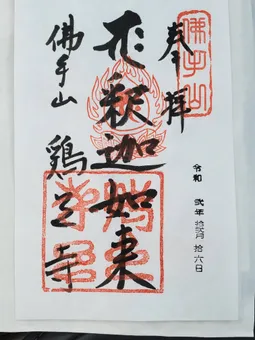 佛手山
奉拝
令和 弐年 拾弐月 拾六日
釋迦如来
佛手山
鶏足寺